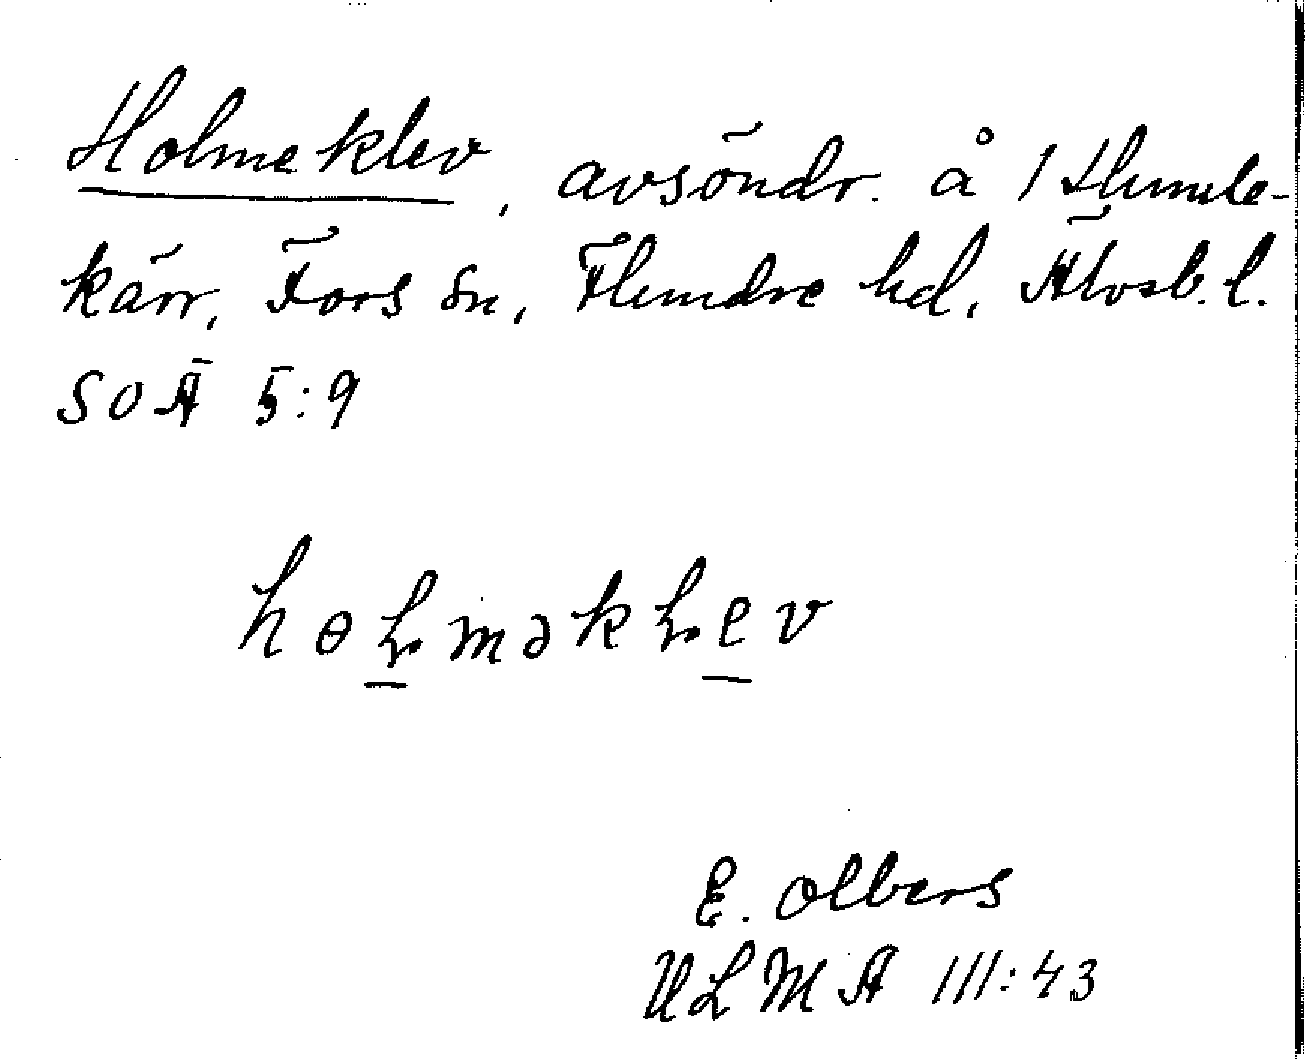 Holmeklev, avsöndr. å 1 Humle-
kärr, Fors sn, Flundre hd, Älvsb. l.
SOÄ 5:9
hɵɫməkɫev
E. Olbers
ULMA 111:43